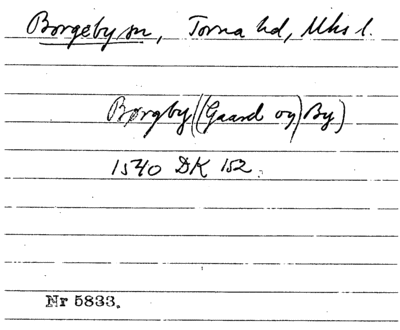 Borgeby sn, Torna hd, Mhs l.
Børgby ((Gaard og) By)
1540 DK 152.
Nr 5833.